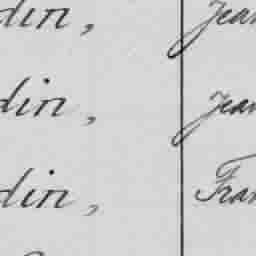 din, Jean
din, Jean
din, Fran